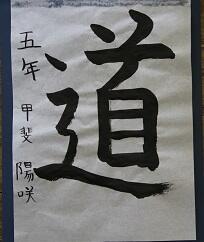 道
五年 甲斐 陽咲